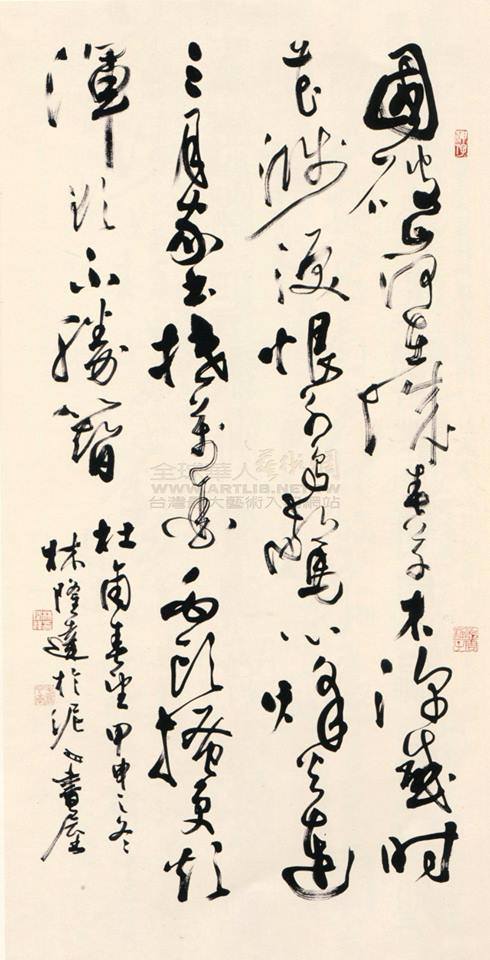 國破山河在城春草木深感時
花濺淚恨別鳥驚心烽火連
三月家書抵萬金白頭搔更短
渾欲不勝簪
杜甫春望甲申之冬
林隆達於泥書屋
全球華人藝術網
WWW.ARTLIB.NET.TW
台灣最大藝術入口網站